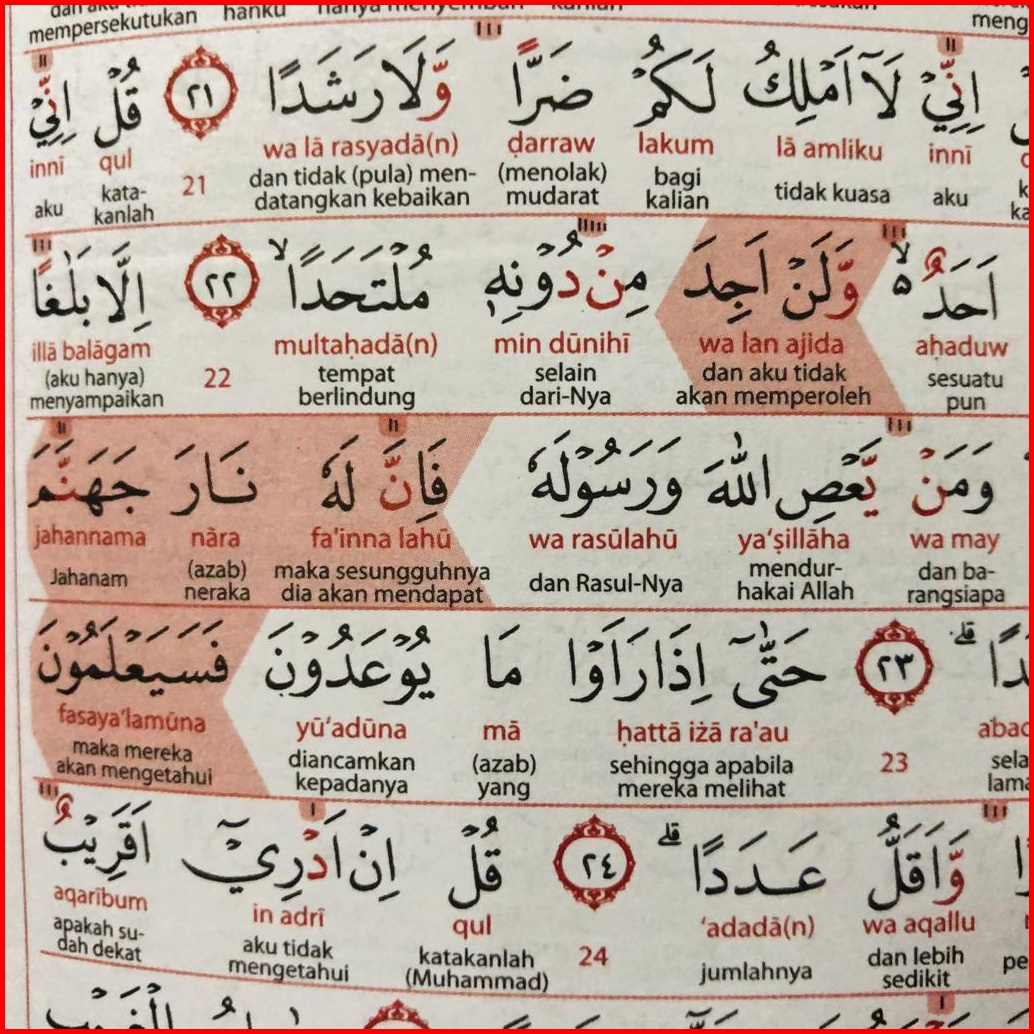 mempersekutukan hanku
اِنِّيْ لَآ اَمْلِكُ لَكُمْ ضَرًّا وَّلَا رَشَدًا ٢١ قُلْ اِنِّيْ
innī lā amliku lakum ḍarraw wa lā rasyadā(n) 21 qul innī
aku tidak kuasa bagi kalian (menolak) mudarat dan tidak (pula) men-datangkan kebaikan kata-kanlah aku
اَحَدٌ ەۙ وَّلَنْ اَجِدَ مِنْ دُوْنِهٖ مُلْتَحَدًا ۙ ٢٢ اِلَّا بَلٰغًا
aḥaduw wa lan ajida min dūnihī multaḥadā(n) 22 illā balāgam
sesuatu pun dan aku tidak akan memperoleh selain dari-Nya tempat berlindung (aku hanya) menyampaikan
وَمَنْ يَّعْصِ اللّٰهَ وَرَسُوْلَهٗ فَاِنَّ لَهٗ نَارَ جَهَنَّمَ
wa may ya‘ṣillāha wa rasūlahū fa'inna lahū nāra jahannama
dan ba-rangsiapa mendur-hakai Allah dan Rasul-Nya maka sesungguhnya dia akan mendapat (azab) neraka Jahanam
ۗ ٢٣ حَتّٰىٓ اِذَا رَاَوْا مَا يُوْعَدُوْنَ فَسَيَعْلَمُوْنَ
23 ḥattā iżā ra'au mā yū‘adūna fasaya‘lamūna
sehingga apabila mereka melihat (azab) yang diancamkan kepadanya maka mereka akan mengetahui
وَّاَقَلُّ عَدَدًاۗ ٢٤ قُلْ اِنْ اَدْرِيْٓ اَقَرِيْبٌ
wa aqallu ‘adadā(n) 24 qul in adrī aqarībum
dan lebih sedikit jumlahnya katakanlah (Muhammad) aku tidak mengetahui apakah su-dah dekat